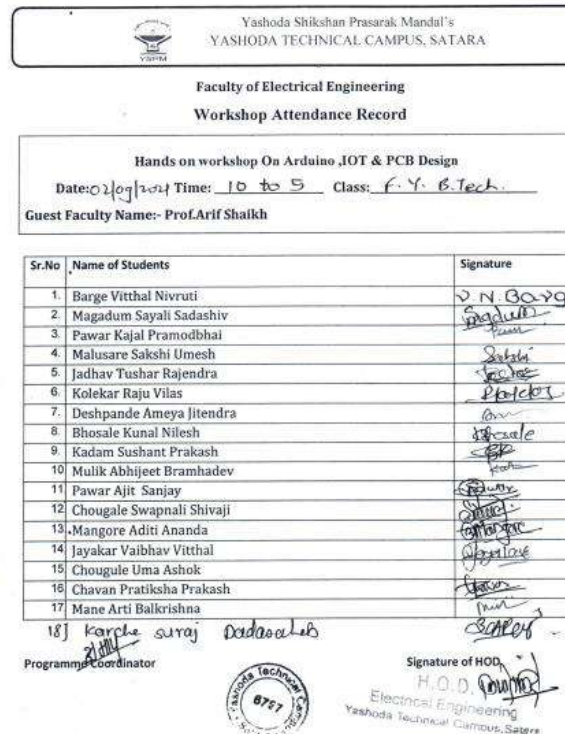 YSPM
Yashoda Shikshan Prasarak Mandal's
YASHODA TECHNICAL CAMPUS, SATARA
Faculty of Electrical Engineering
Workshop Attendance Record
Hands on workshop On Arduino ,IOT & PCB Design
Date: 02/09/2021 Time: 10 to 5 Class: F. Y. B.Tech.
Guest Faculty Name:- Prof.Arif Shaikh
Sr.No Name of Students Signature
1. Barge Vitthal Nivruti V. N. Barg
2. Magadum Sayali Sadashiv
3. Pawar Kajal Pramodbhai
4. Malusare Sakshi Umesh Sakshi
5. Jadhav Tushar Rajendra
6. Kolekar Raju Vilas
7. Deshpande Ameya Jitendra
8. Bhosale Kunal Nilesh Bhosale
9. Kadam Sushant Prakash
10 Mulik Abhijeet Bramhadev
11 Pawar Ajit Sanjay
12 Chougale Swapnali Shivaji
13. Mangore Aditi Ananda Mangore
14 Jayakar Vaibhav Vitthal
15 Chougule Uma Ashok
16 Chavan Pratiksha Prakash
17 Mane Arti Balkrishna
18] Karche suraj Dadasaheb
Programme Coordinator Signature of HOD
Yashoda Technical Campus
6757
H.O.D.
Electrical Engineering
Yashoda Technical Campus, Satara